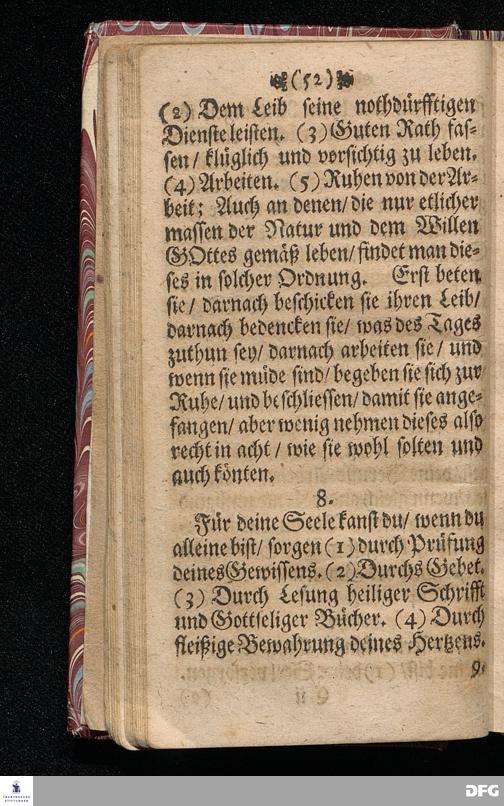 (52)
(2) Dem Leib seine nothdürfftigen
Dienste leisten. (3) Guten Rath fas-
sen/ klüglich und vorsichtig zu leben.
(4) Arbeiten. (5) Ruhen von der Ar-
beit; Auch an denen/ die nur etlicher
massen der Natur und dem Willen
GOttes gemäß leben/ findet man die-
ses in solcher Ordnung. Erst beten
sie/ darnach beschicken sie ihren Leib/
darnach bedencken sie/ was des Tages
zuthun sey/ darnach arbeiten sie/ und
wenn sie müde sind/ begeben sie sich zur
Ruhe/ und beschliessen/ damit sie ange-
fangen/ aber wenig nehmen dieses also
recht in acht/ wie sie wohl solten und
auch könten.
8.
Für deine Seele kanst du/ wenn du
alleine bist/ sorgen (1) durch Prüfung
deines Gewissens. (2) Durchs Gebet.
(3) Durch Lesung heiliger Schrifft
und Gottseliger Bücher. (4) Durch
fleißige Bewahrung deines Hertzens.
9.
FRANCKESCHE
STIFTUNGEN
DFG